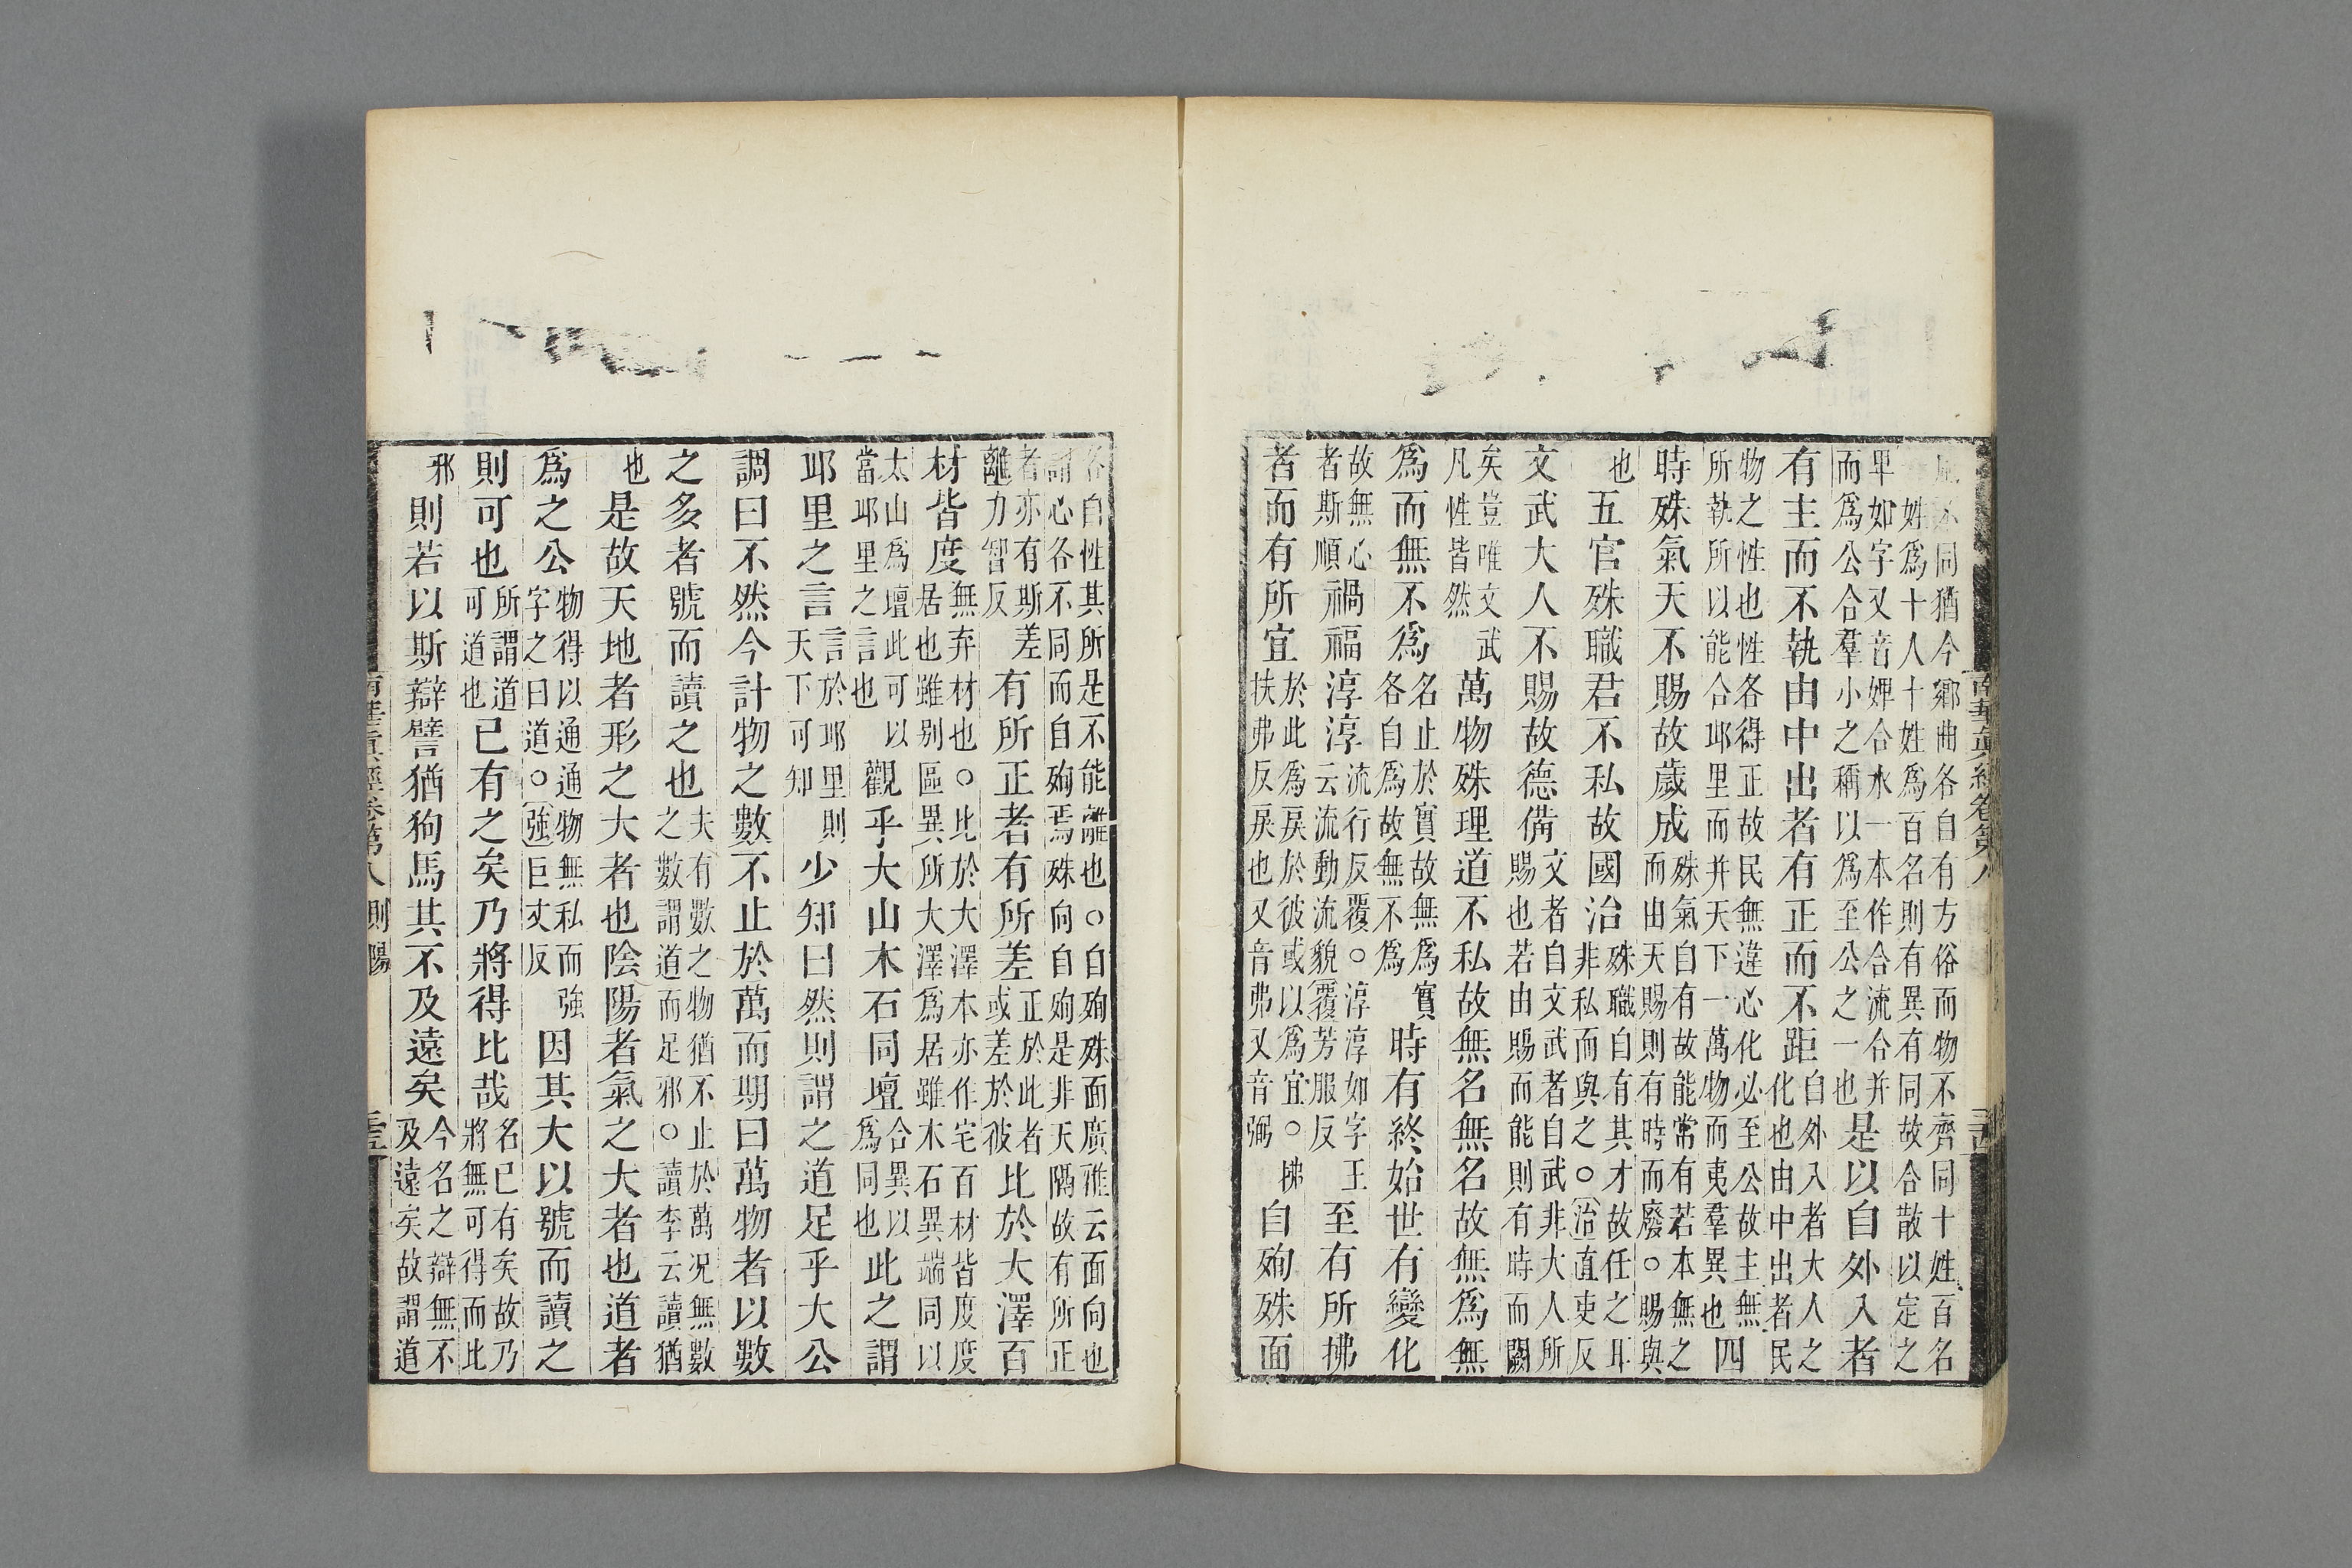 風不同猶今鄉曲各自有方俗而物不齊同十姓百名
一姓爲十人十姓爲百名則有異有同故合散以定之
卑如字又音婢合水一本作合流合并
而爲公合羣小之稱以爲至公之一也
是以自外入者
有主而不執由中出者有正而不距
自外入者大人之
化也由中出者民
物之性也性各得正故民無違心化必至公故主無
所執所以能合邱里而并天下一萬物而夷羣異也
四
時殊氣天不賜故歲成
殊氣自有故能常有若本無之
而出天賜則有時而廢○賜與
也
五官殊職君不私故國治
殊職自有其才故任之耳
非私而與之○治直吏反
文武大人不賜故德備
文者自文武者自武非大人所
賜也若由賜而能則有時而闕
矣豈唯文武
凡性皆然
萬物殊理道不私故無名無名故無爲無
爲而無不爲
名止於實故無爲實
各自爲故無不爲
時有終始世有變化
故無心
者斯順
禍福淳淳
流行反覆○淳淳如字王
云流動流貌覆芳服反
至有所拂
者而有所宜
於此爲戾於彼或以爲宜○拂
扶弗反戾也又音弗又音弼
自殉殊面
南華眞經卷第八
各自性其所是不能離也○自殉殊面廣雅云面向也
謂心各不同而自殉焉殊向自殉是非天隔故有所正
者亦有斯差
離力智反
有所正者有所差
正於此者
或差於彼
比於大澤百
材皆度
無弃材也○比於大澤本亦作宅百材皆度度
居也雖別區異所大澤爲居雖木石異端同以
太山爲壇此可以
當邱里之言也
觀乎大山木石同壇
合異以
爲同也
此之謂
邱里之言
言於邱里則
天下可知
少知曰然則謂之道足乎大公
調曰不然今計物之數不止於萬而期曰萬物者以數
之多者號而讀之也
夫有數之物猶不止於萬況無數
之數謂道而足邪○讀李云讀猶
也
是故天地者形之大者也陰陽者氣之大者也道者
爲之公
物得以通通物無私而強
字之曰道○強巨丈反
因其大以號而讀之
則可也
所謂道
可道也
已有之矣乃將得比哉
名已有矣故乃
將無可得而比
邪
則若以斯辯譬猶狗馬其不及遠矣
今名之辯無不
及遠矣故謂道
南華眞經卷第八 則陽